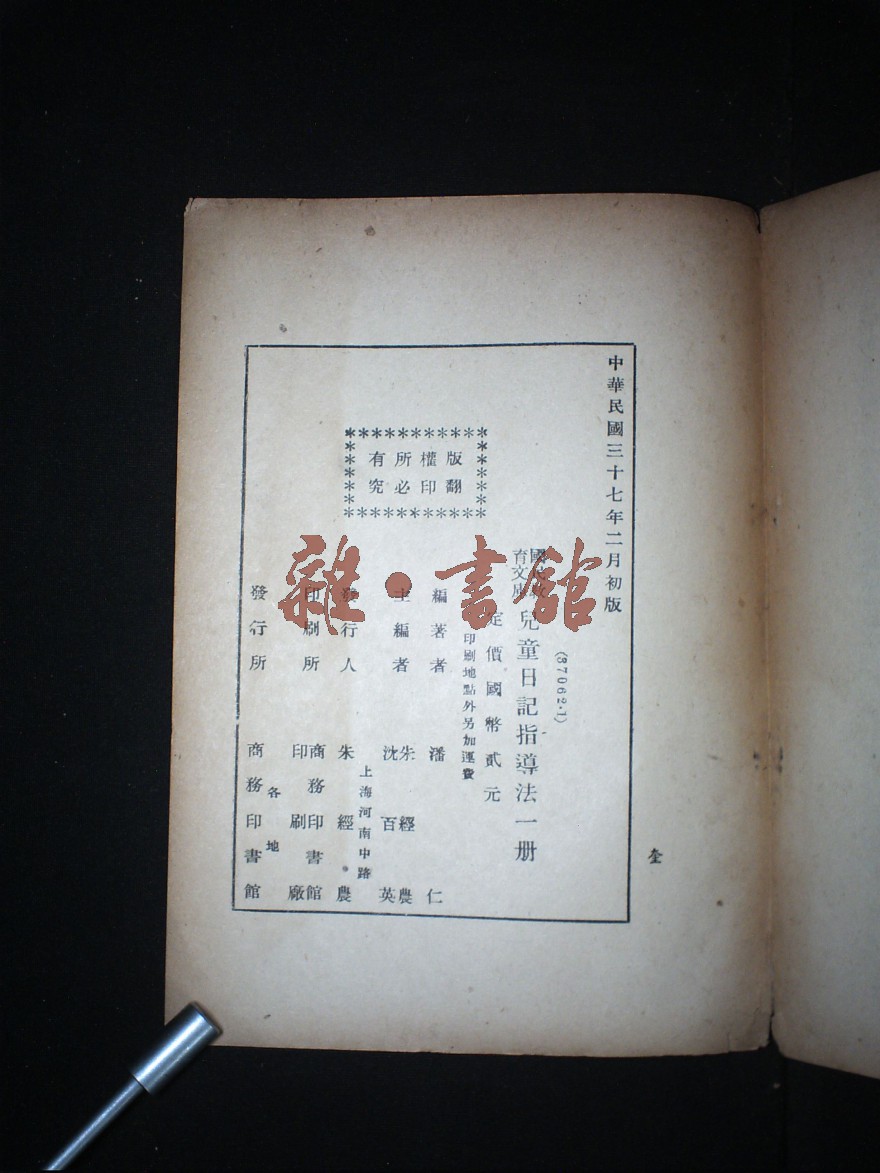 中華民國三十七年二月初版
(37062·1)
國民教育文庫
兒童日記指導法一册
定價國幣貳元
印刷地點外另加運費
版權所有
翻印必究
編著者 潘仁
主編者 朱經農 沈百英
發行人 朱經農
上海河南中路
印刷所 商務印書館印刷廠
各地
發行所 商務印書館
雜·書館